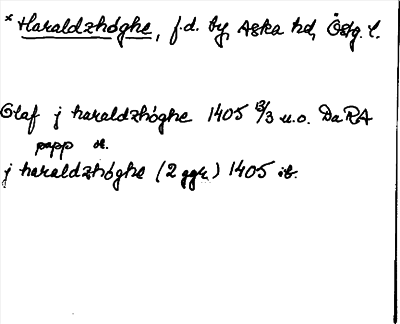 * Haraldzhóghe, f.d. by, Aska hd, Östg. l.
Olaf j haraldzhóghe 1405 13/3 u.o. DaRA
papp or.
j haraldzhóghe (2 ggr) 1405 ib.